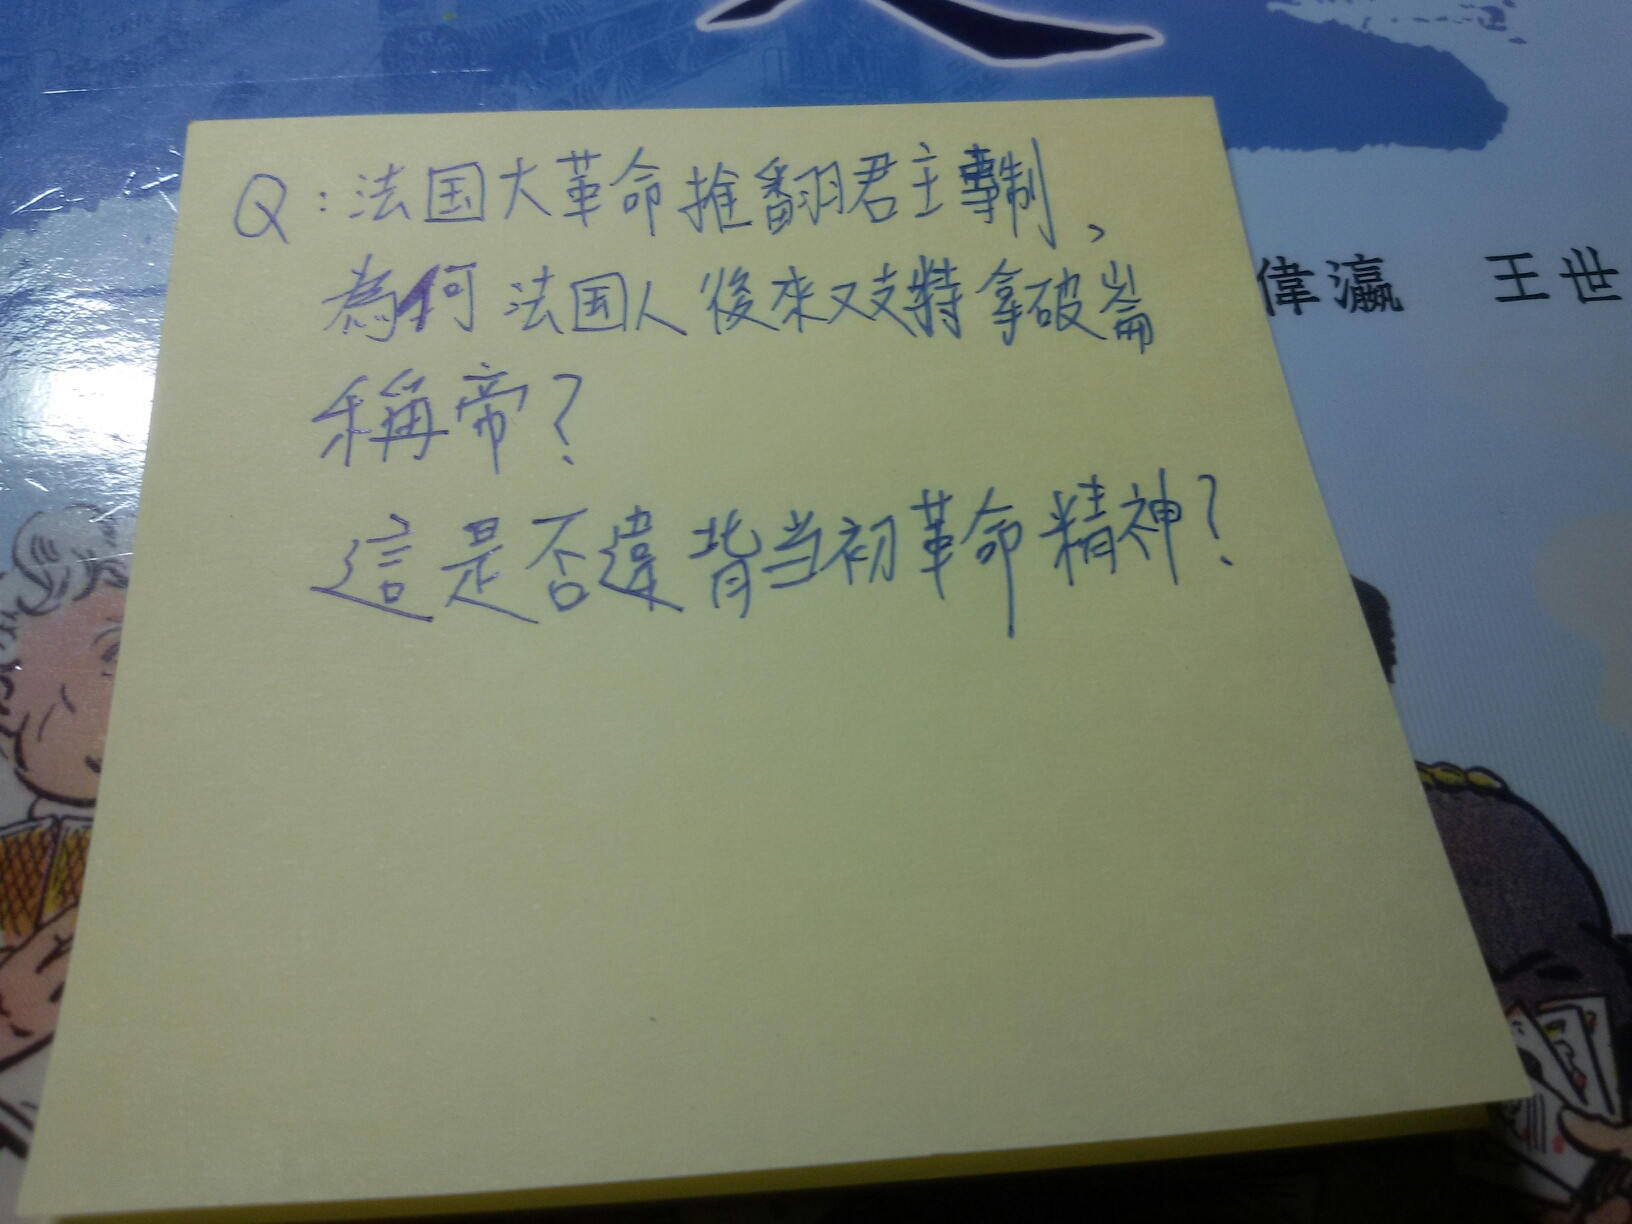 Q：法国大革命推翻君主專制，
為何法国人後來又支持拿破崙
稱帝？
這是否違背当初革命精神？
偉瀛 王世